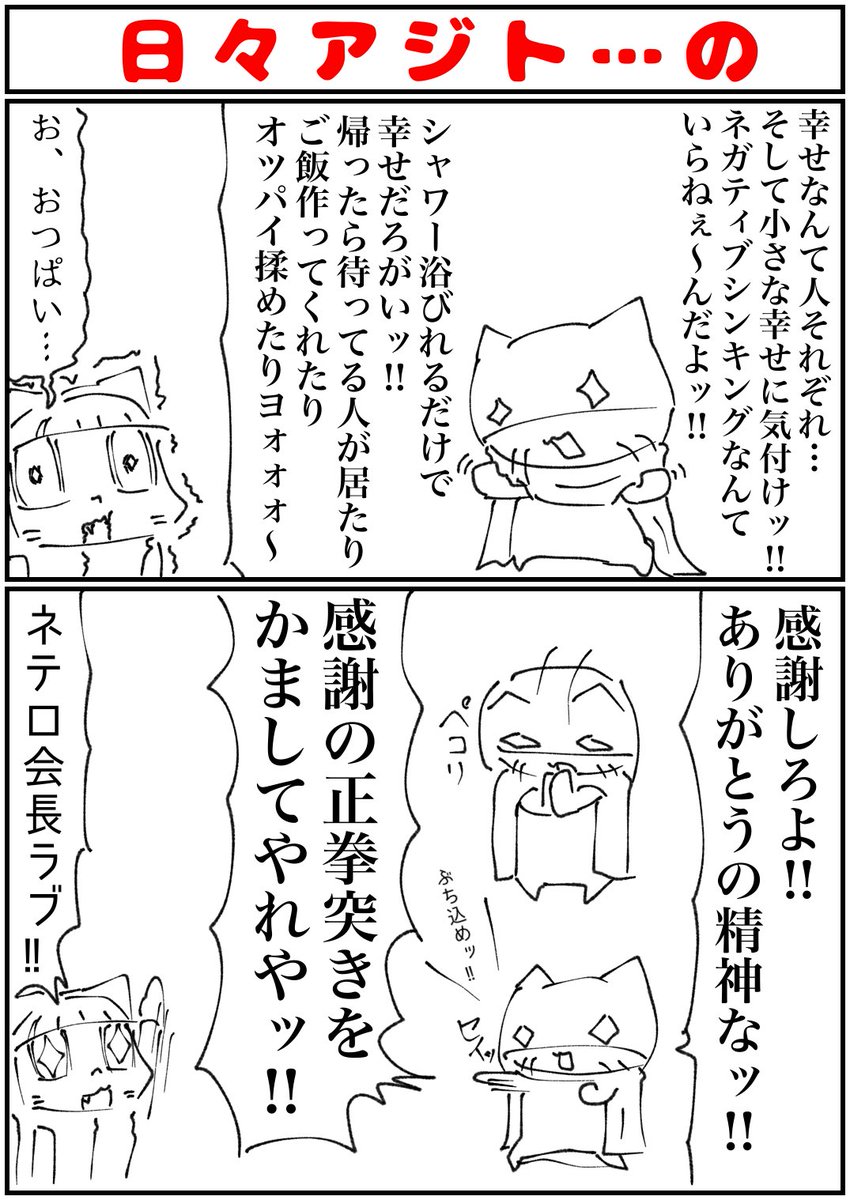 日々アジト…の
幸せなんて人それぞれ…
そして小さな幸せに気付けッ!!
ネガティブシンキングなんて
いらねぇ～んだよッ!!
シャワー浴びれるだけで
幸せだろがいッ!!
帰ったら待ってる人が居たり
ご飯作ってくれたり
オツパイ揉めたりヨォォォ～
お、おっぱい…
感謝しろよ!!
ありがとうの精神なッ!!
ペコリ
ぶち込めッ!!
セイッ
感謝の正拳突きを
かましてやれやッ!!
ネテロ会長ラブ!!